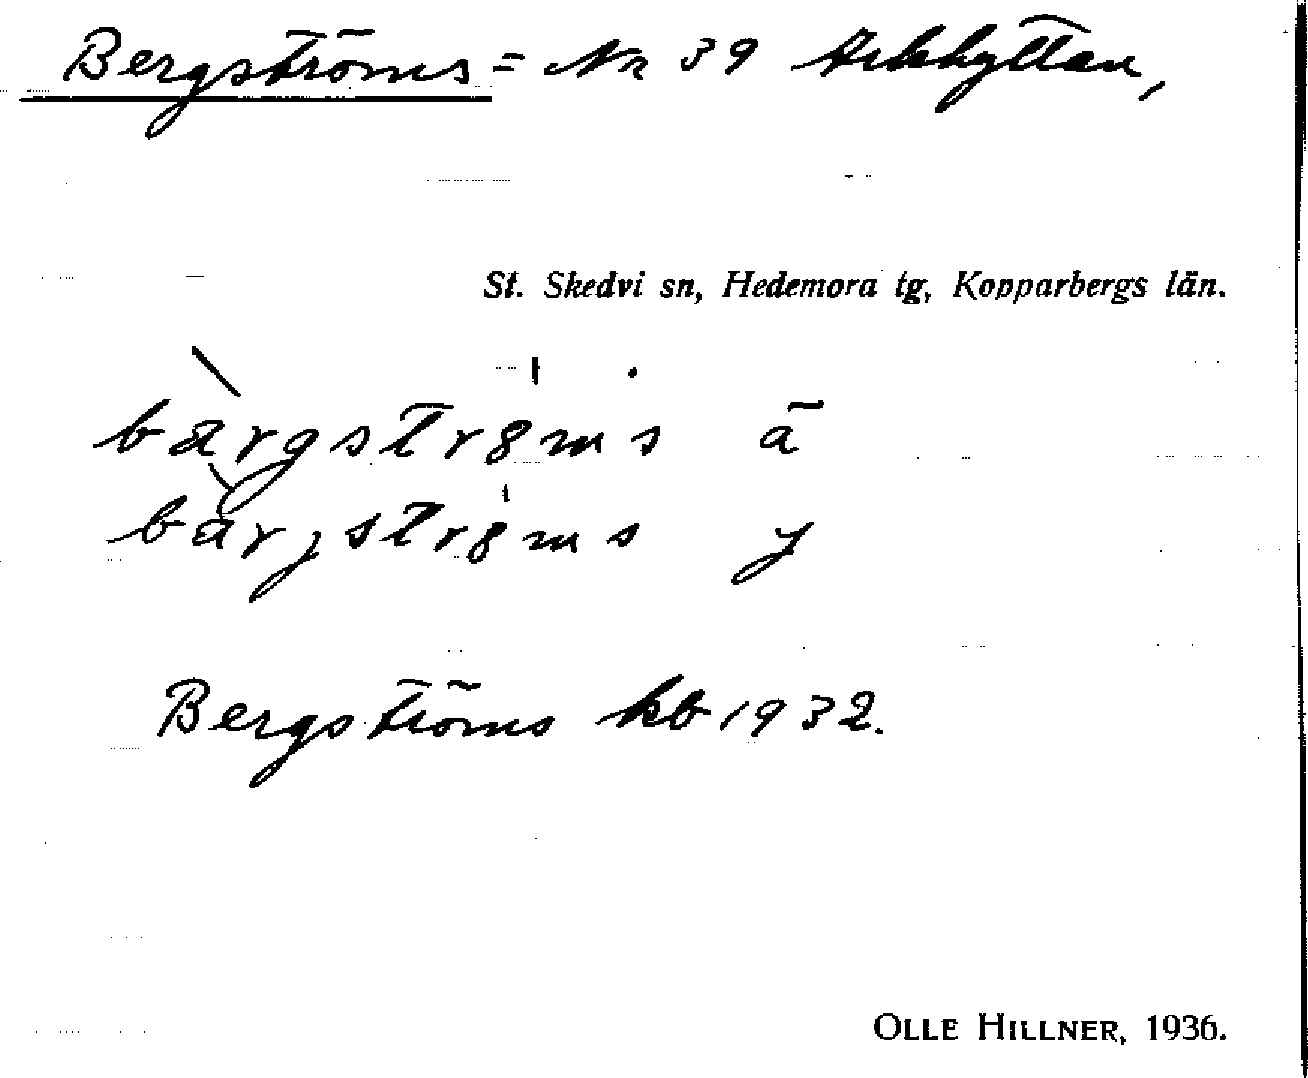 Bergströms = Nr 39 Arkhyttan,
St. Skedvi sn, Hedemora tg, Kopparbergs län.
bärgströms ä
bärjströms y
Bergströms kb 1932.
OLLE HILLNER, 1936.